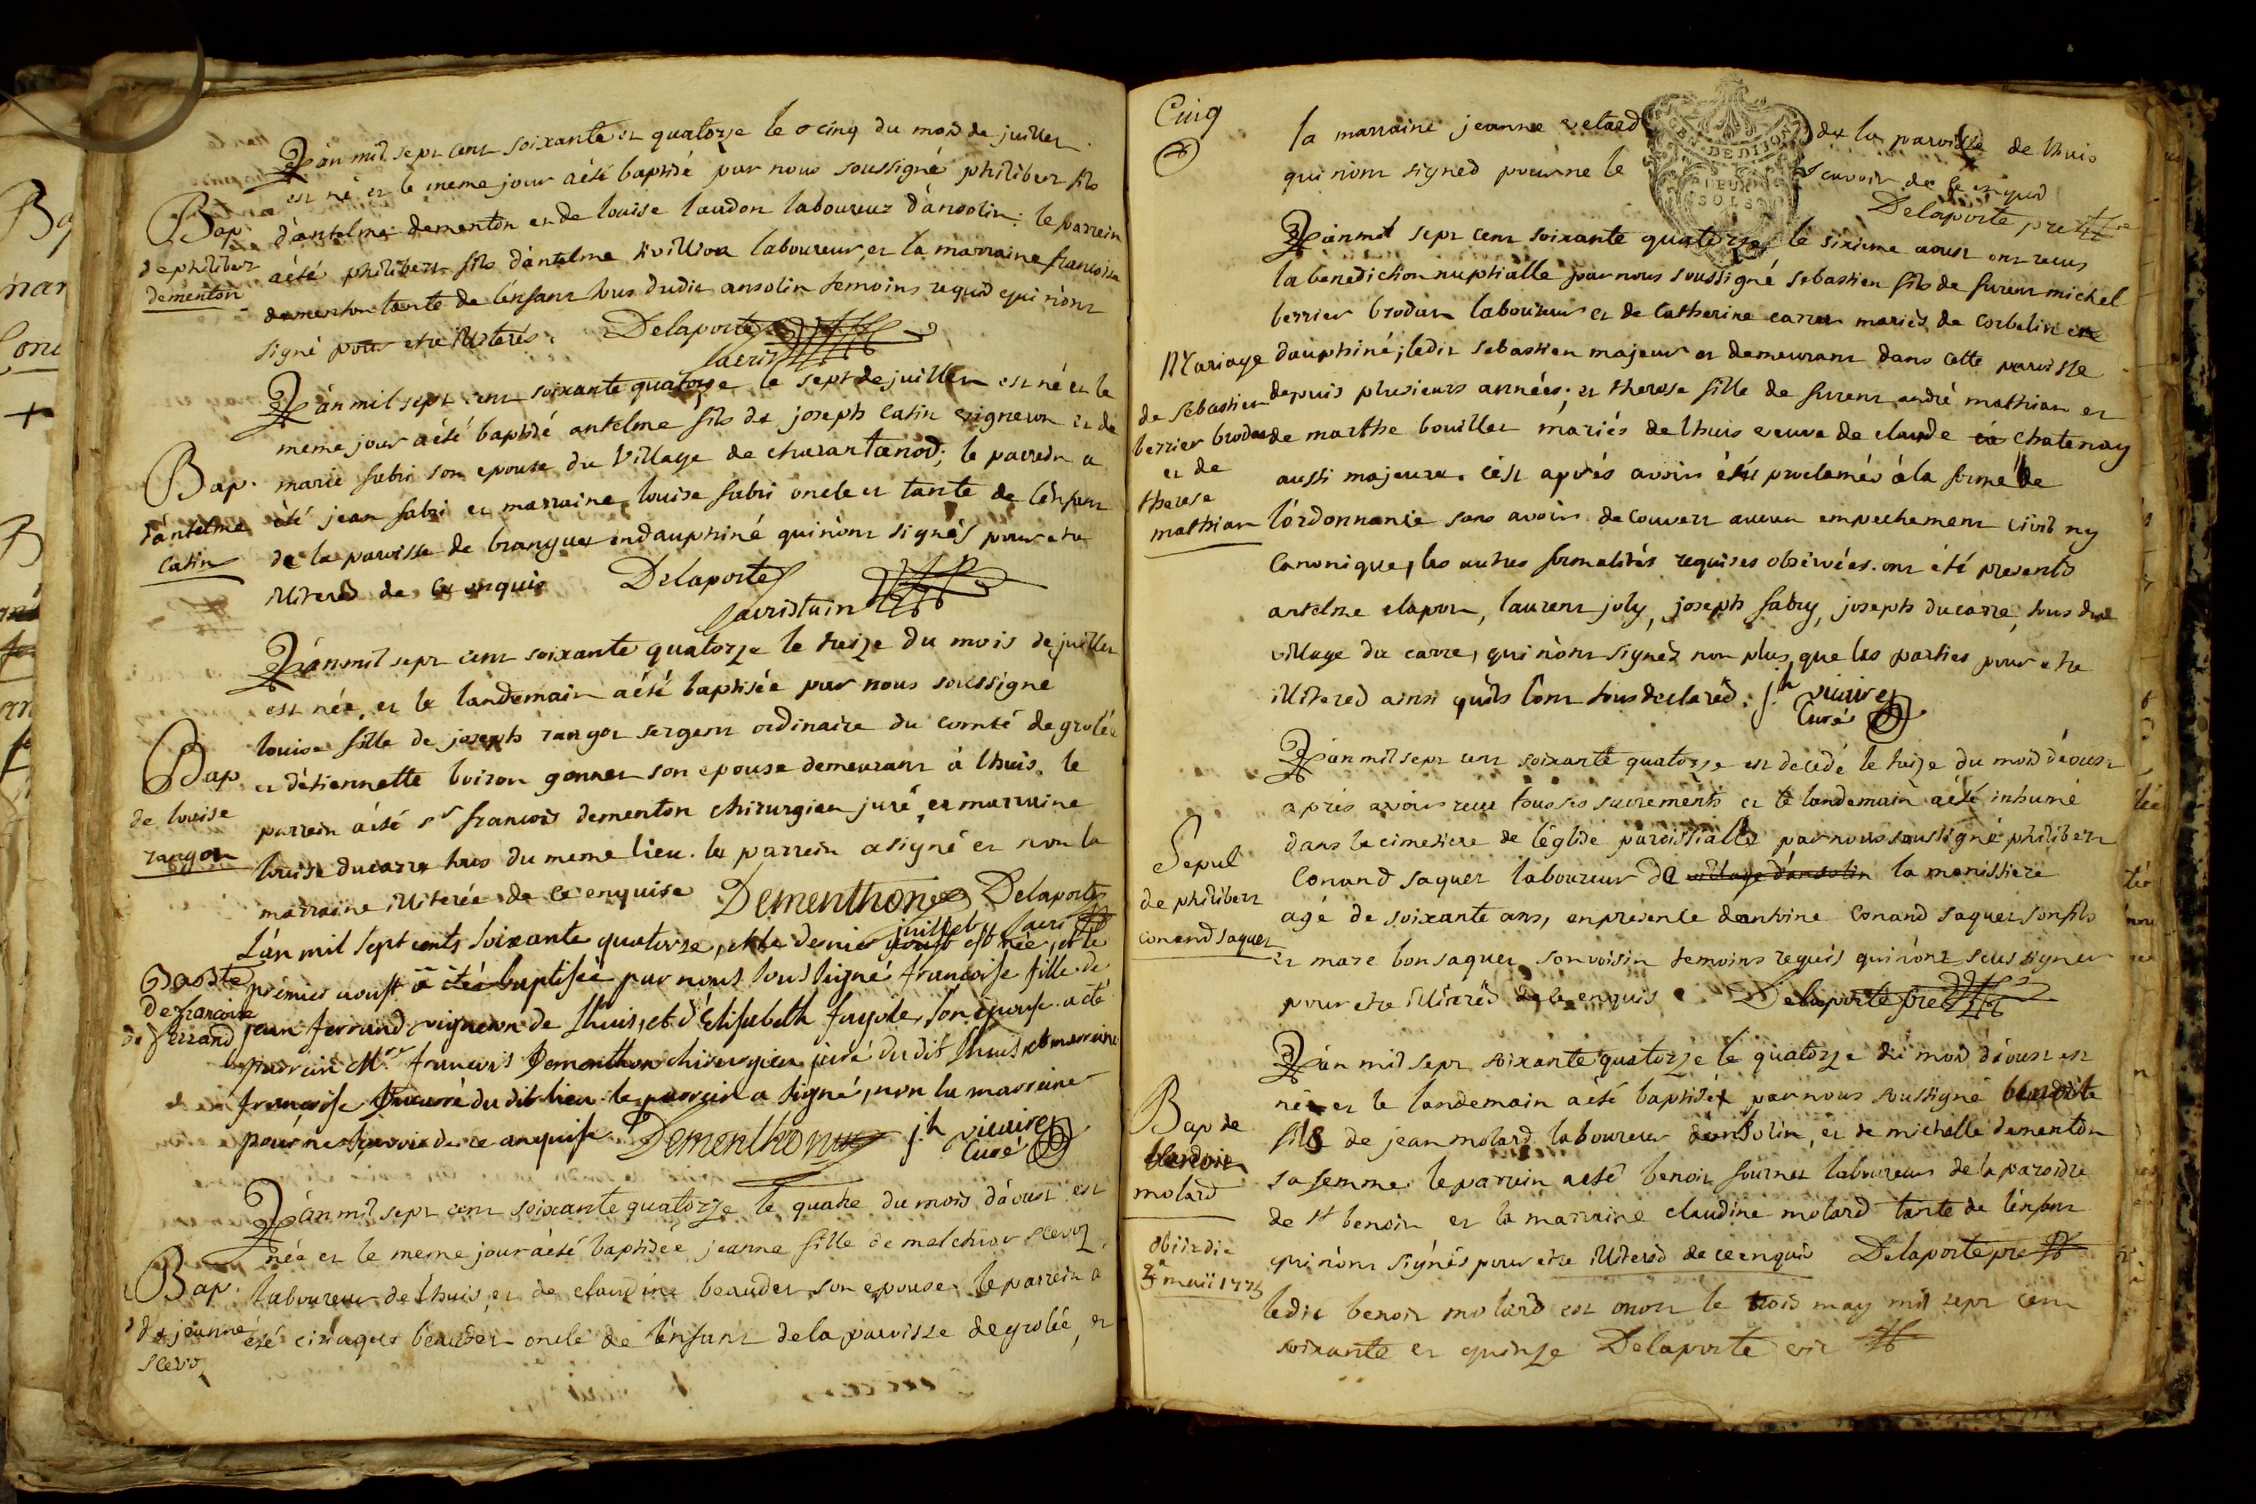 L'an mil sept cent soixante et quatorze le cinq du mois de juillet
est né et le meme jour a été baptisé par nous soussigné philibert fils
Bap.
de philiber
dementon
d'antelme dementon et de louise laudon laboureur d'ansolin. le parrein
a été philibert fils d'antelme laboureur, et la marraine francoise
dementon tante de l'enfant tous dudit ansolin temoins requis qui n'ont
signé pour etre illiterés. Delaporte
sacrist
L'an mil sept cent soixante quatorze le sept de juillet est né et le
meme jour a été baptisé antelme fils de joseph catin vigneron et de
Bap.
d'antelme
catin
marie fabri son epouse du village de ; le parrein a
été jean fabri et marraine louise fabri oncle et tante de l'enfant
de la paroisse de brangues en dauphiné qui n'ont signés pour etre
illiterés de ce enquis Delaporte
sacristain
L'an mil sept cent soixante quatorze le treize du mois de juillet
est née, et le landemain a été baptisée par nous soussigné
Bap.
de louise
rangot
louise fille de joseph rangot sergent ordinaire du comté de grolée
et d'étiennette boizon gonnet son epouse demeurant à lhuis. le
parrein a été sr francois dementon chirurgien juré, et marraine
louise ducarre tous du meme lieu. le parrein a signé et non la
marraine illiterée de ce enquise Dementhon Delaporte
juillet sacri
L'an mil sept cents soixante quatorze, et le dernier aoust est née, et le
Baptē
de francoise
ferrand
premier aoust a été baptisée par nous sous signé francoise fille de
jean ferrand vigneron de lhuis, et d'Elisabeth fayole, son epouse. a été
parrein Mr francois Dementhon chirurgien juré du dit lhuis, et marraine
francoise Ducarre du dit lieu le parrein a signé, non la marraine
pour ne scavoir de ce enquise. Dementhon jh vicaire
Curé
L'an mil sept cent soixante quatorze le quatre du mois d'aoust est
née et le meme jour a été baptisée jeanne fille de melchior
Bap.
de jeanne
laboureur de lhuis, et de claudine beaudet son epouse. le parrein a
été beaudet oncle de l'enfant de la paroisse de grolée, et
Cinq
la marraine jeanne de la paroisse de lhuis
qui n'ont signés pour ne le scavoir de ce enquis
GEN. DE DIJON
DEUX
SOLS
Delaporte pretre
L'an mil sept cent soixante quatorze, le sixieme aoust ont receus
la benediction nuptialle par nous soussigné sebastien fils de furent michel
berrier brodar laboureur et de catherine mariés de corbelin en
Mariage
de sebastien
berrier brodar
et de
therese
mathian
dauphiné; ledit sebastien majeur et demeurant dans cette paroisse
depuis plusieurs années; et therese fille de furent andré mathian et
de marthe bouillet mariés de lhuis veuve de claude chatenay
aussi majeure. c'est après avoir été proclamés à la forme de
l'ordonnance sans avoir decouvert aucun empechement civil ny
Canonique, les autres formalités requises observées. ont été presents
antelme clapot, laurent joly, joseph fabry, joseph ducarre, tous du
village du carre, qui n'ont signés non plus, que les parties pour etre
illiterés ainsi quils l'ont tous declarés. jh vicaire
Curé
L'an mil sept cent soixante quatorze est decedé le treize du mois d'aoust
après avoir receu tous ses sacrements et le landemain a été inhumé
Sepul
de philibert
conand saquet
dans le cimetiere de l'église paroissialle par nous soussigné philibert
Conand saquet laboureur de village d'ansolin la monissiere
agé de soixante ans, en presence d'antoine Conand saquet son fils
et marc bon saquet son voisin temoins requis qui n'ont seus signer
pour etre illiterés de ce enquis. Delaporte pre
L'an mil sept soixante quatorze le quatorze du mois d'aoust est
né et le landemain a été baptisé par nous soussigné benoit
Bap de
benoit
molard
fils de jean molard laboureur d'ansolin, et de michelle dementon
sa femme. le parrein a été benoit fournet laboureur de la paroisse
de st benoit et la marraine claudine molard tante de l'enfant
qui n'ont signés pour etre illiterés de ce enquis Delaporte pre
obiit die
3a maii 1775
ledit benoit molard est mort le trois may mil sept cent
soixante et quinze Delaporte vic